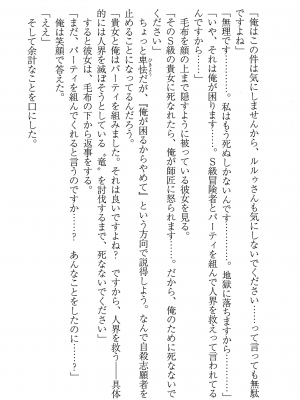 『俺はこの件は気にしませんから、ルルゥさんも気にしないでください……って言っても無駄
ですよね』
「無理です……。私はもう死ぬしかないんです……。地獄に落ちますから……」
「いや、それは俺が困ります……。S級冒険者とパーティを組んで人界を救えって言われてる
のでそのS級の貴女に死なれたら、俺が師匠に怒られます……。だから、俺のために死なないで
ください」
毛布を顔の上まで隠すように被っている彼女を見る。
ちょっと卑怯だが、『俺が困るからやめて』という方向で説得しよう。なんで自殺志願者を
止めることになってるんだろう。
「貴女と俺はパーティを組みました。それは良いですよね？　ですから、人界を救う――具体
的には人界を滅ぼそうとしている〝竜〟を討伐するまで、死なないでください」
すると彼女は、毛布の下から返事をする。
「まだ、パーティを組んでくれると言うのですか……？　あんなことをしたのに……？」
俺は笑顔で答えた。
「ええ」
そして余計なことを口にした。